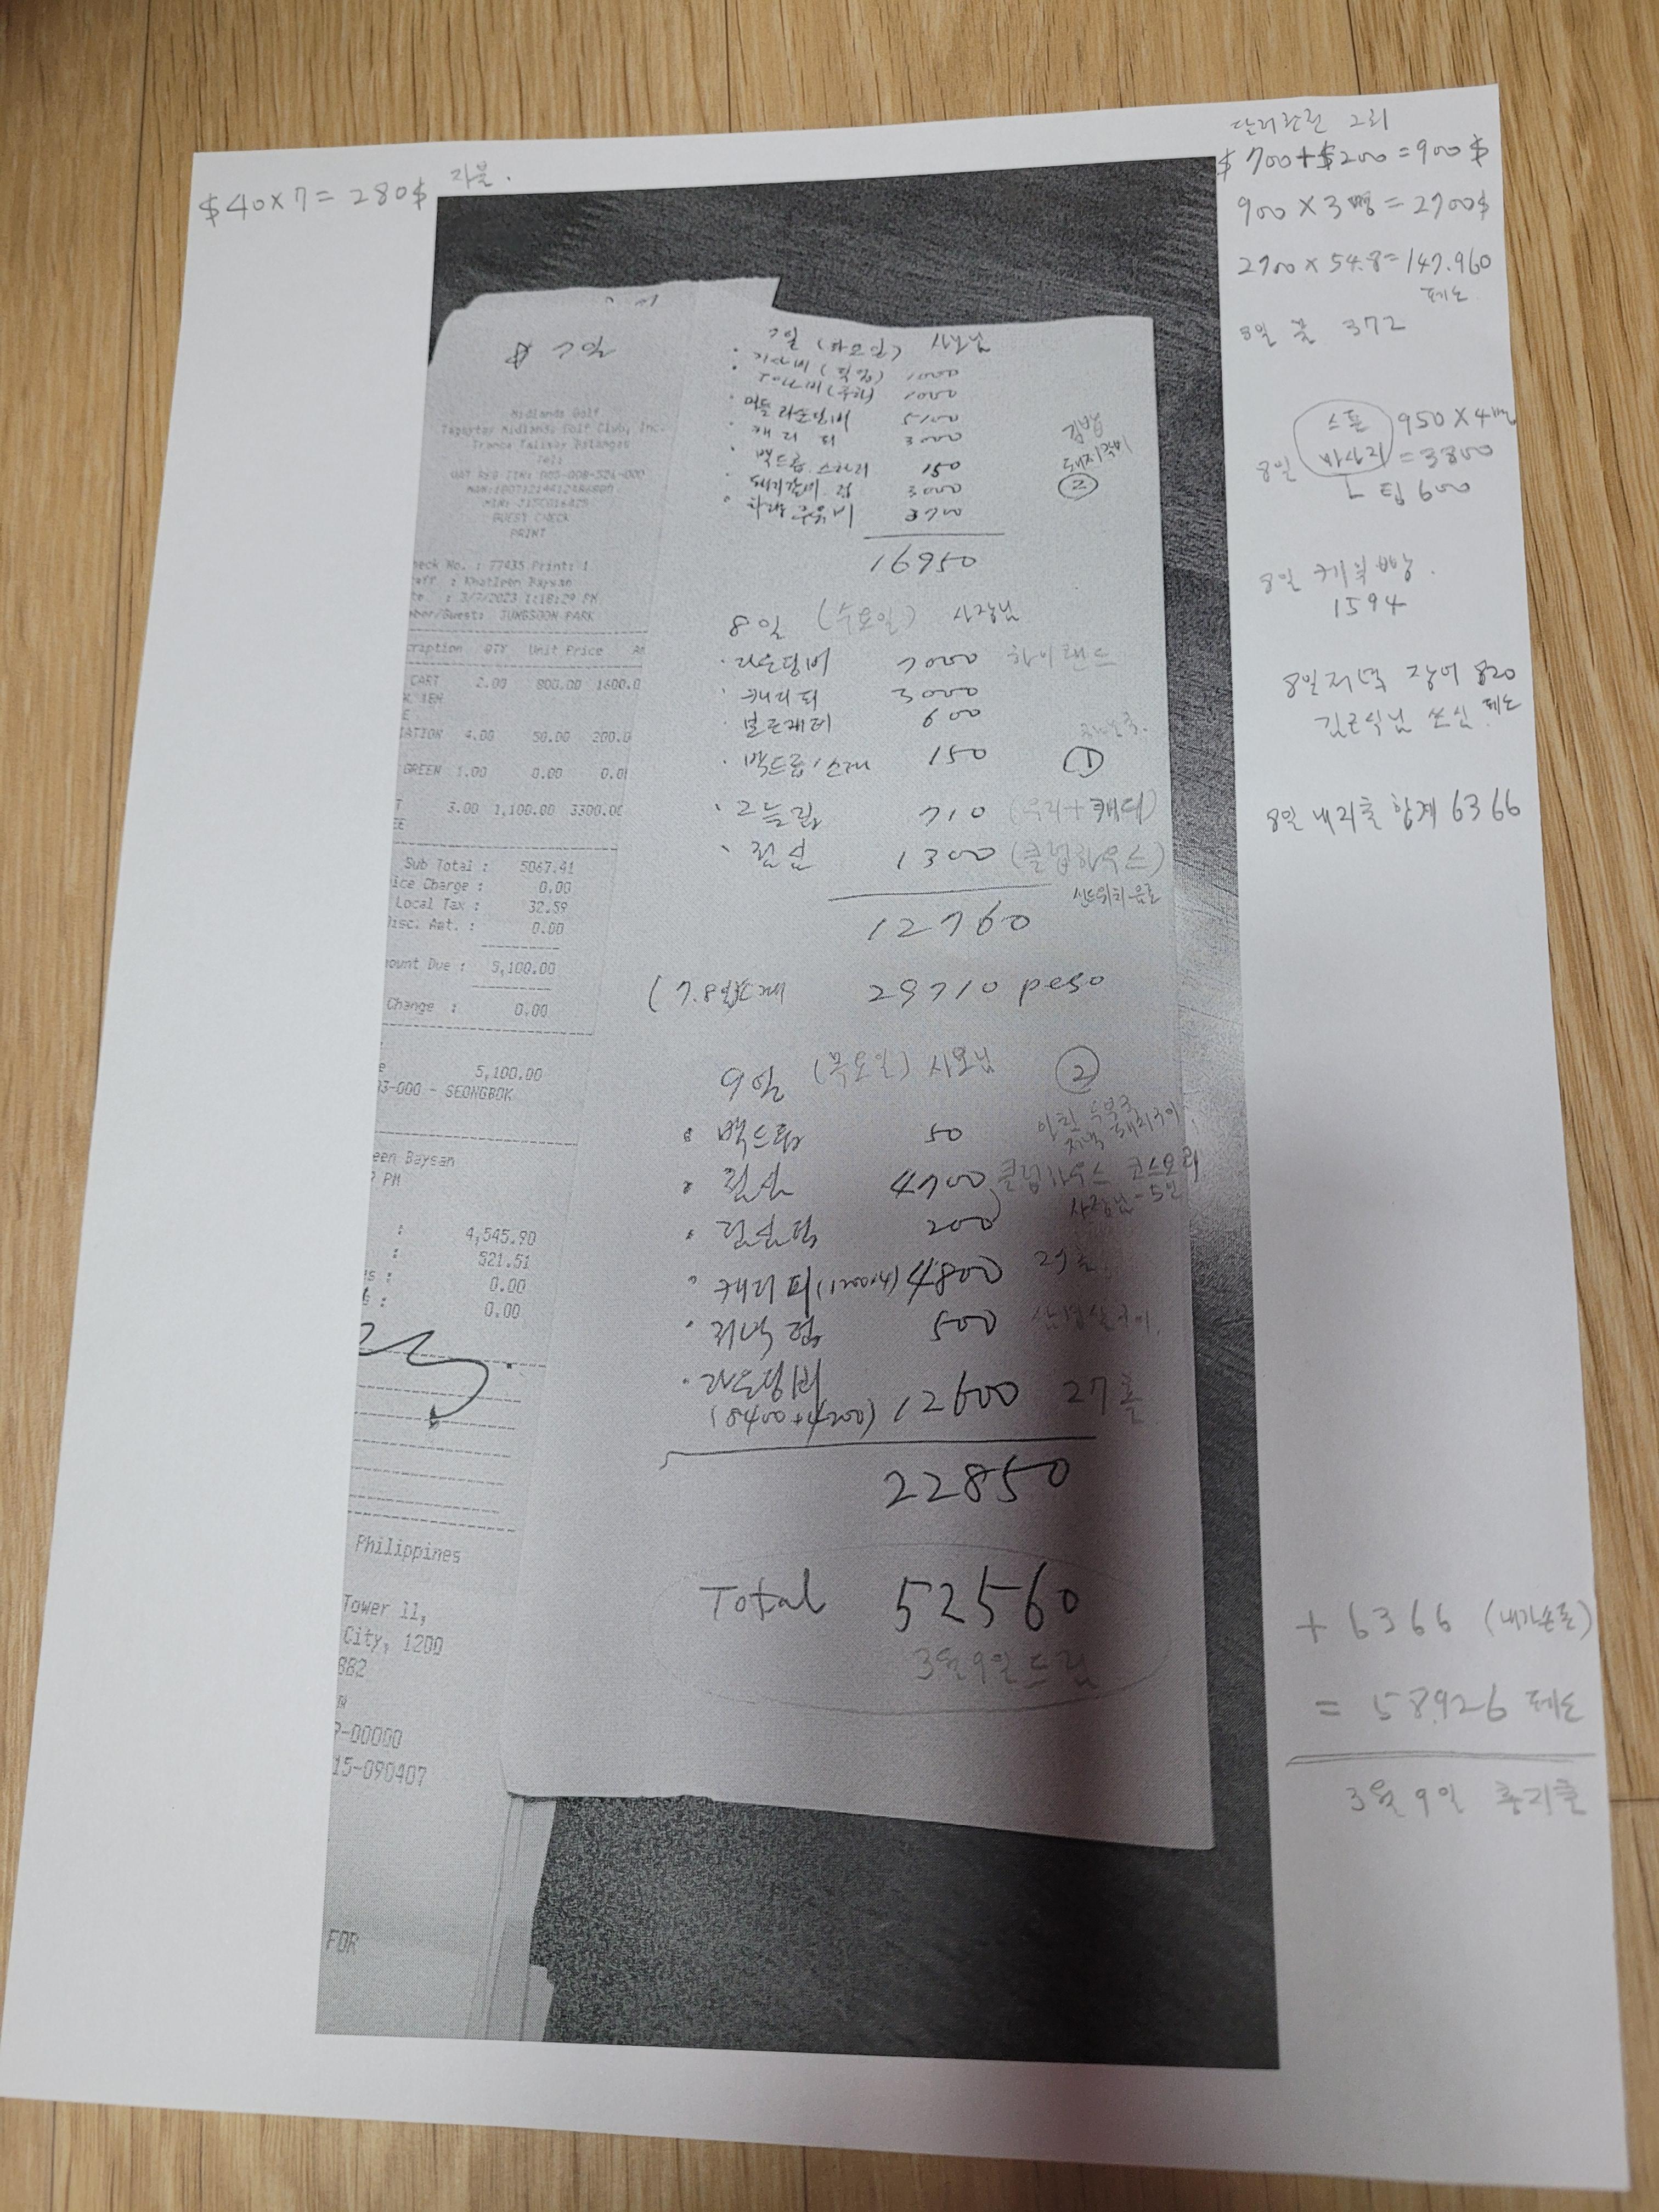 $40×7=280$ 지불.
달러환전 2회
$700+$200=900$
900×3명=2700$
2700×54.8=147.960
페소
8일 꽃 372
스톤 950×4명
8일 마사지=3800
ㄴ팁 600
8일 케익빵.
1594
8일저녁 장어 820
김근식님 쏘심 페소
8일 내지출 합계 6366
+6366 (내가쓴돈)
=58.926 페소
3월 9일 총지출
Midlands Golf
Tagaytay Midlands Golf Club, Inc.
Tranca Talisay Batangas
Tel:
VAT REG TIN: 005-008-526-000
GUEST CHECK
PRINT
heck No. : 77435 Print: 1
aff : Khatleen Baysan
te. : 3/7/2023 1:18:29 PM
mber/Guest: JUNGSOON PARK
cription QTY Unit Price Am
CART 2.00 800.00 1600.0
E
IATION 4.00 50.00 200.0
GREEN 1.00 0.00 0.0
T 3.00 1,100.00 3300.00
Sub Total : 5067.41
ice Charge : 0.00
Local Tax : 32.59
Disc. Amt. : 0.00
mount Due : 5,100.00
Change : 0.00
e 5,100.00
93-000 - SEONGBOK
een Baysan
PM
: 4,545.90
: 521.51
es : 0.00
: 0.00
Philippines
Tower 11,
City, 1200
882
P-00000
15-090407
FOR
7일 (화요일) 사장님
1000
1000
라운딩비 5100
캐디피 3000 김밥
백드롭 150 돼지갈비
돼지갈비집 3000 ②
차량주유비 3700
16950
8일 (수요일) 사장님
· 라운딩비 7000 하이랜드
· 캐디피 3000
600
· 백드롭 150 ①
· 그늘집 710 (우리+캐디)
· 점심 1300 (클럽하우스)
샌드위치 음료
12760
(7.8일 29710 peso
9일 (목요일) 사모님 ②
· 백드롭 50
· 점심 4700 클럽하우스 코스요리
· 점심팁 200
· 캐디피(1200×4) 4800 27홀
· 저녁팁 500
· 라운딩비
(8400+4200) 12600 27홀
22850
Total 52560
3월9일드림